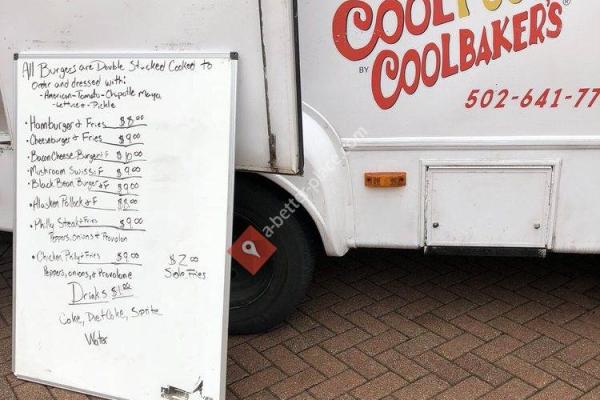 All Burgers are Double Stacked Cooked to
order and dressed with:
- American - Tomato - Chipotle Mayo
- Lettuce - Pickle
• Hamburger & Fries $8.00
• Cheeseburger & Fries $9.00
• Bacon Cheese Burger & F $10.00
• Mushroom Swiss & F $9.00
• Black Bean Burger & F $9.00
• Alaskan Pollock & F $8.00
• Philly Steak & Fries $9.00
Peppers, onions & Provalon
• Chicken Philly & Fries $9.00
Peppers, onions, & Provalone
$2.00
Solo Fries
Drinks $1.00
Coke, Diet Coke, Sprite
Water
COOL
BY COOLBAKER'S®
502-641-77
a-better-place.com